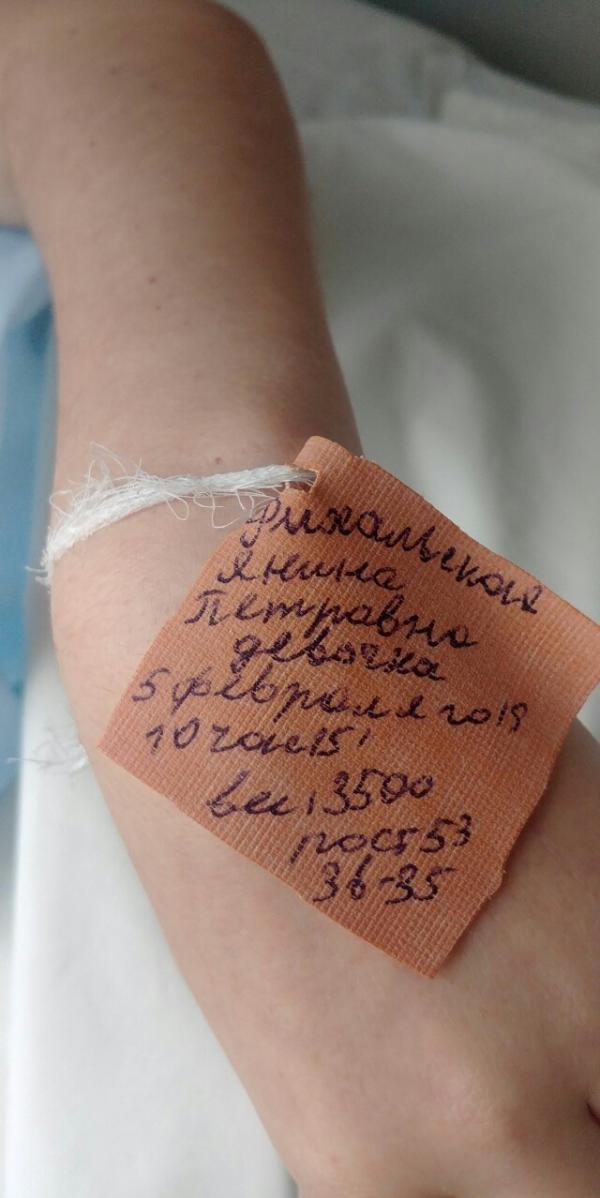 Фихальская
Янина
Петравна
девочка
5 февраля 2019
10 час 15'
вес, 3500
рост 53
36-35